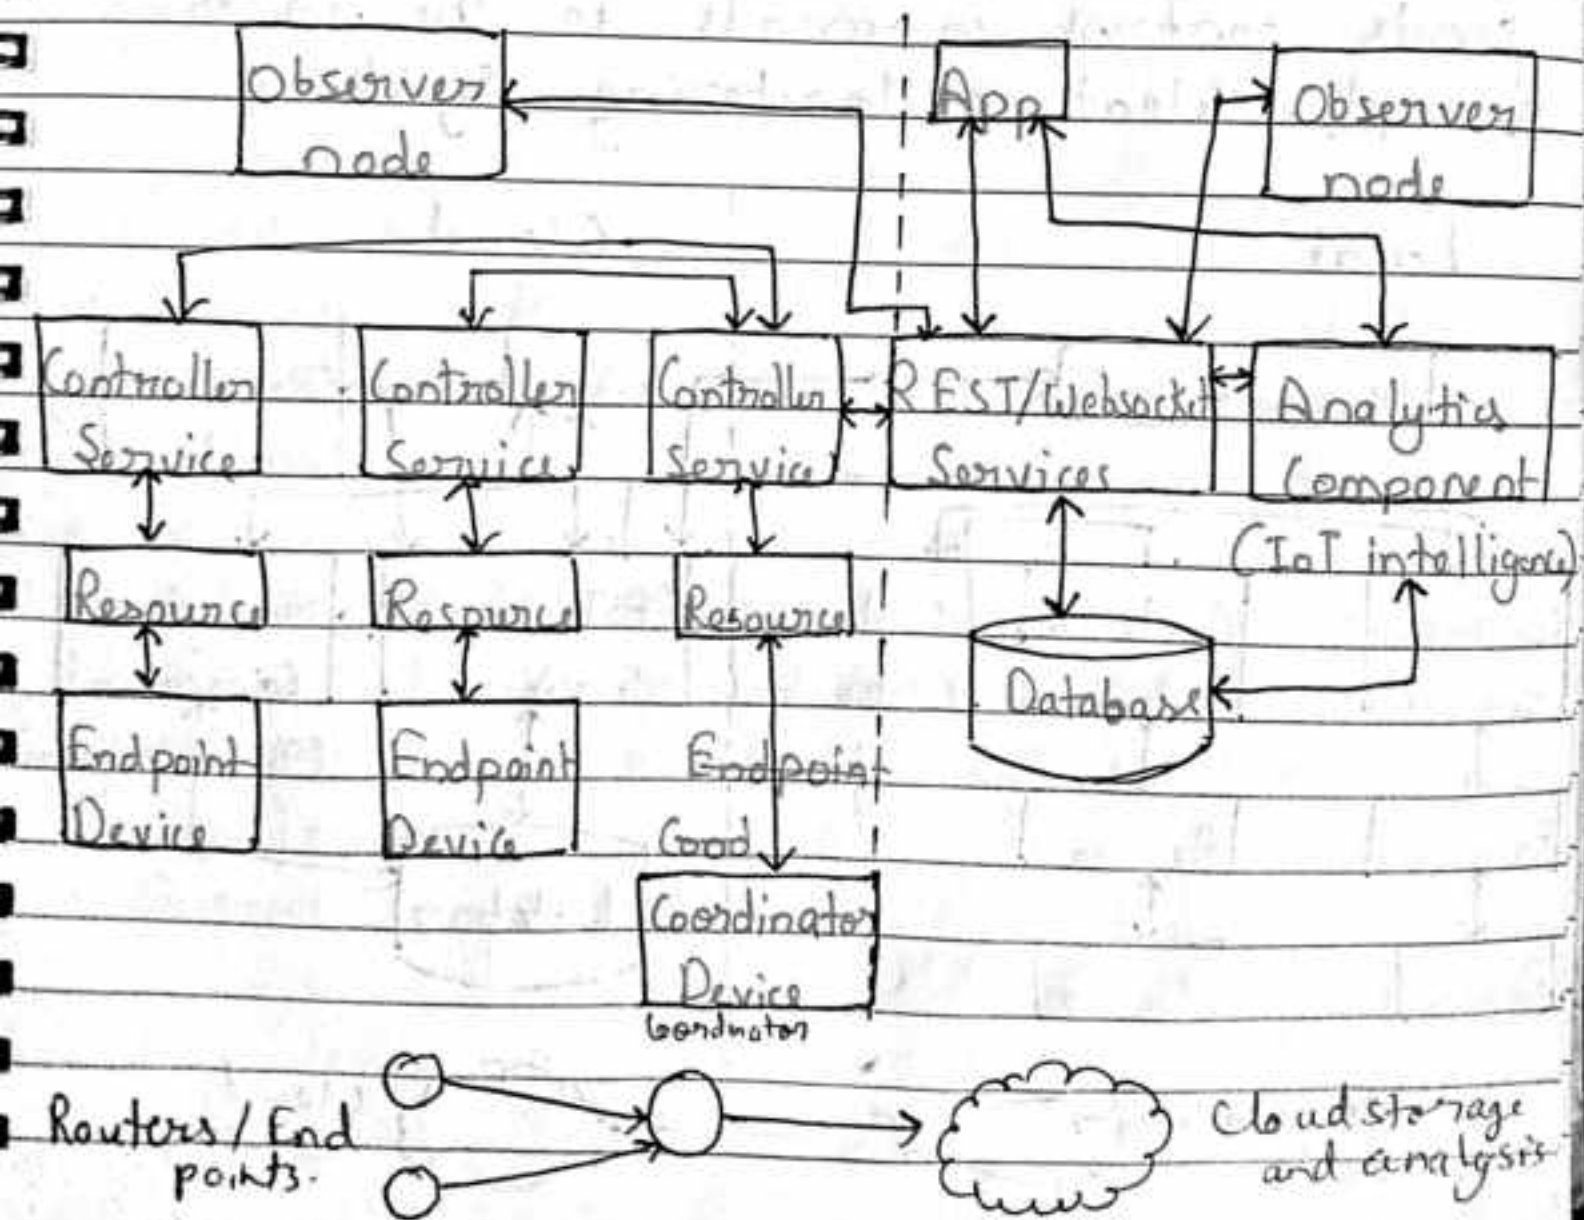 Observer
node
App
Observer
node
Controller
Service
Controller
Service
Controller
Service
REST/Websocket
Services
Analytics
Component
(IoT intelligence)
Resource
Resource
Resource
Database
Endpoint
Device
Endpoint
Device
Endpoint
Good
Coordinator
Device
Coordinator
Routers/End
points.
Cloud storage
and analysis